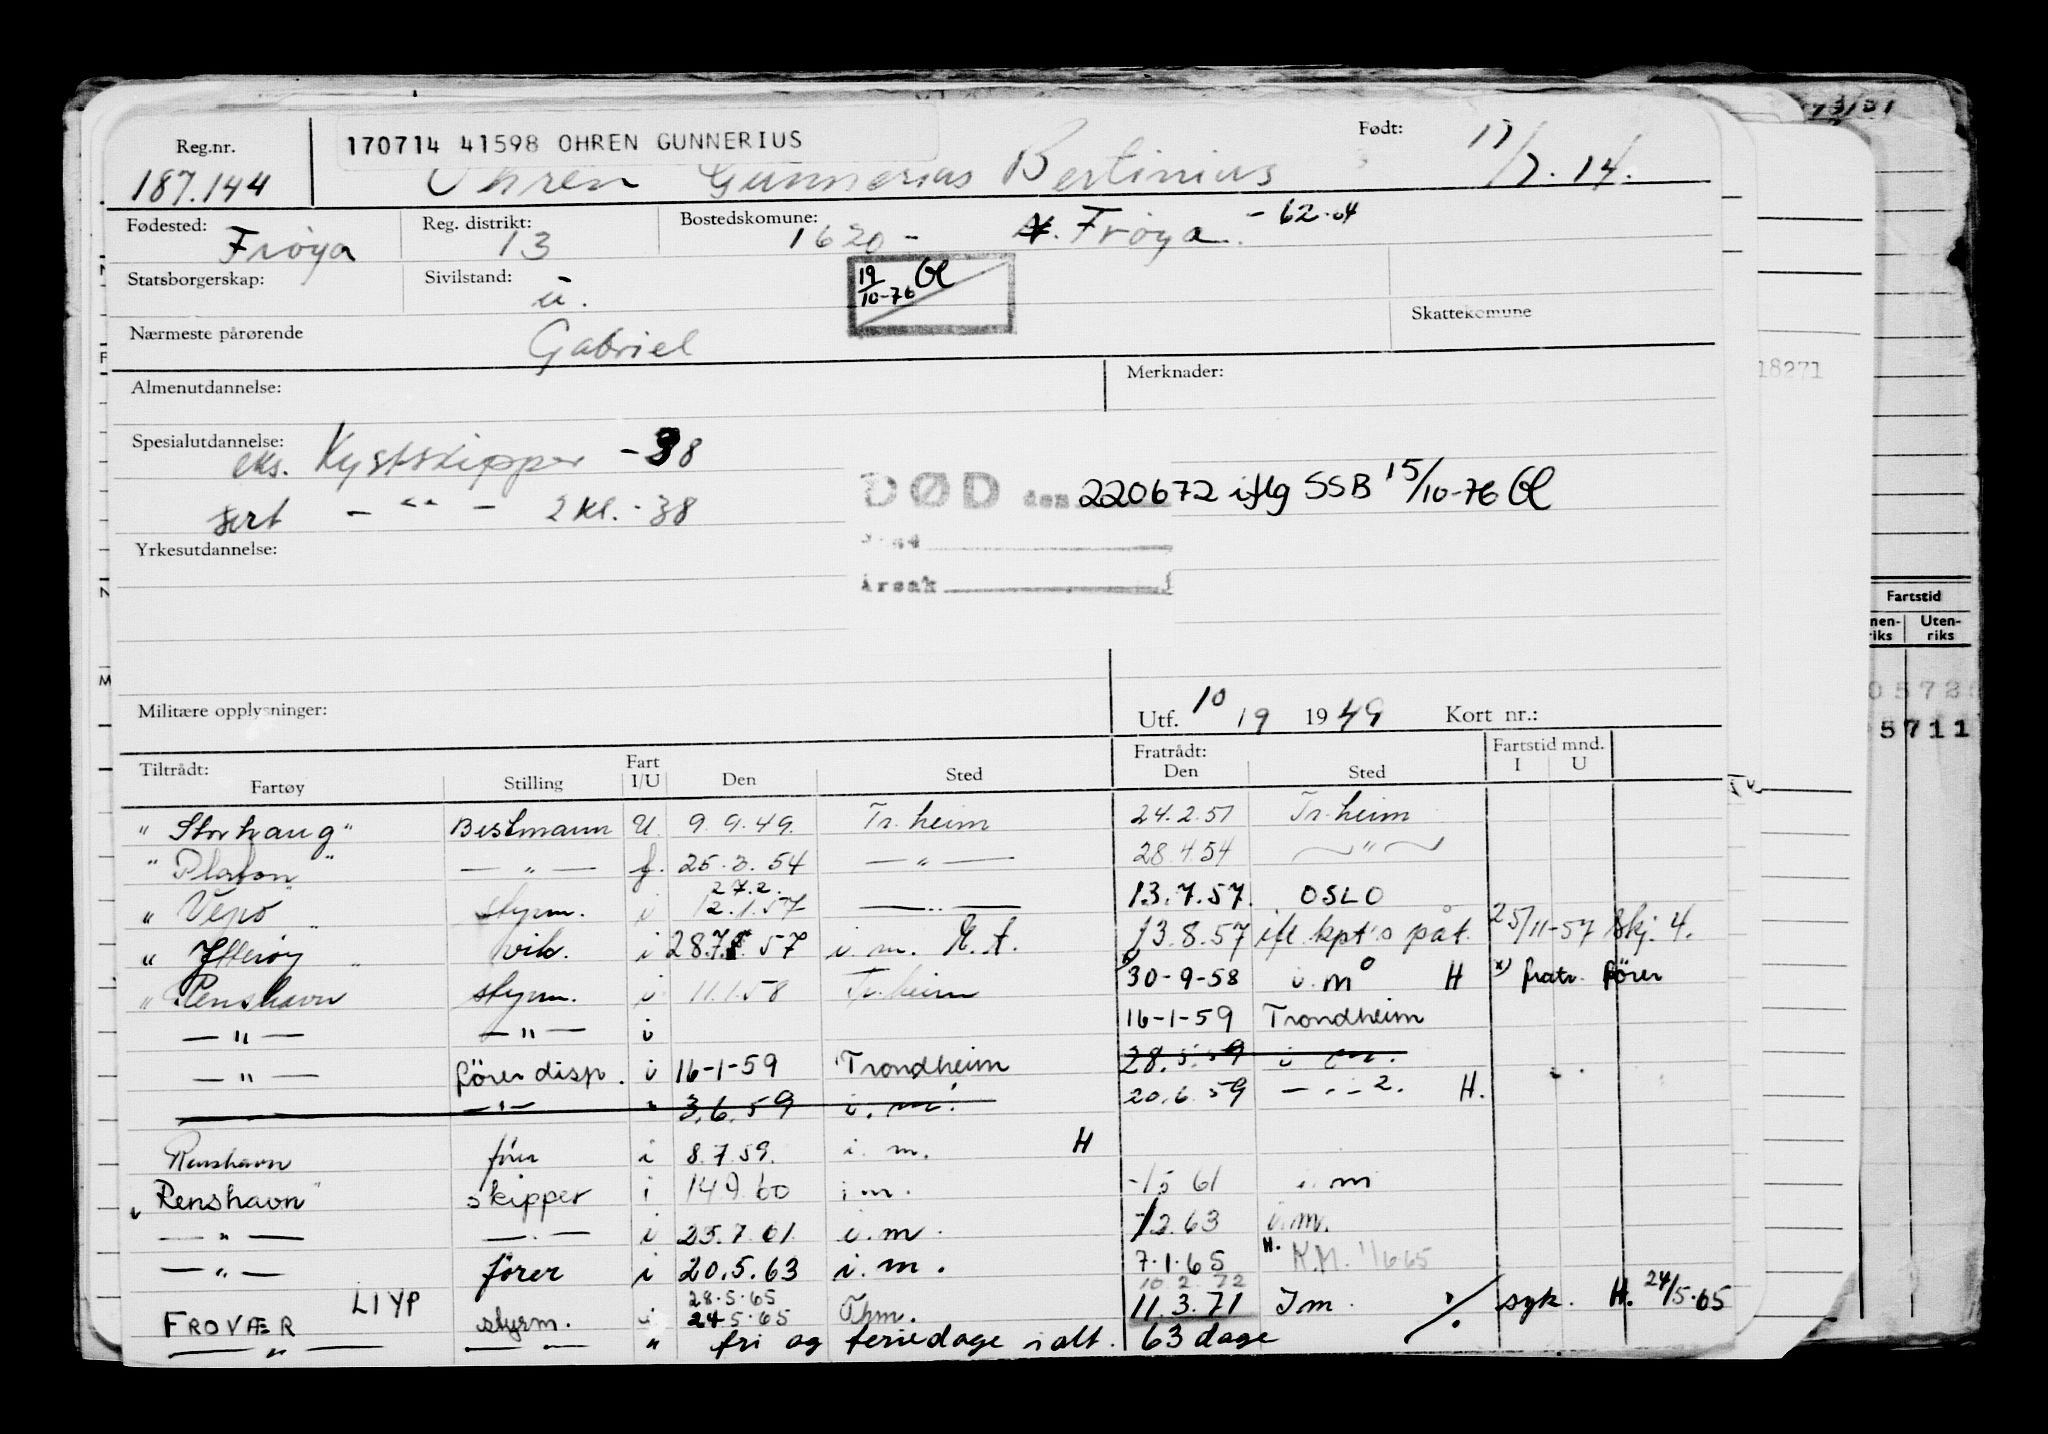 73/51
Reg.nr. 170714 41598 OHREN GUNNERIUS Født: 17/7.14.
187.144 Ohren Gunnerius Bertinius
Fødested: Frøya Reg. distrikt: 13 Bostedskomune: 1620 - N. Frøya. - 62.04
Statsborgerskap: Sivilstand: u. 19/10-76 Ol
Skattekomune
Nærmeste pårørende Gabriel
Almenutdannelse: Merknader:
18271
Spesialutdannelse: eks. Kystskipper - 38
DØD den 220672 iflg SSB 15/10-76 Ol
sert - " - 2 kl. - 38
Sted
Yrkesutdannelse:
Årsak
Fartstid
Uten-
riks
Militære opplysninger: Utf. 10/19 1949 Kort nr.:
5711
Tiltrådt: Fart Fratrådt: Fartstid mnd.
Fartøy Stilling I/U Den Sted Den Sted I U
"Storhaug" Bestmann U. 9.9.49. Tr.heim 24.2.51 Tr.heim
"Platon" — " — f. 25.3.54 — " — 28.4.54 — " —
27.2.
"Vepo" styrm. i 12.1.57 — " — 13.7.57. OSLO
"Ytterøy" vik. i 28.7.57 i.m. 13.8.57 ifl. kpt's påt. 25/11-57 Skj. 4.
"Renshavn styrm. i 11.1.58 Tr.heim 30-9-58 i.m H x) fratr. fører
— " — — " — i 16-1-59 Trondheim
— " — fører disp. i 16-1-59 Trondheim 28.5.59 i m.
— " — " 3.6.59 i. m. 20.6.59 — " — 2. H.
Renshavn fører i 8.7.59. i. m. H
"Renshavn" skipper i 14.9.60 i m. -/5 61 i. m
— " — — " — i 25.7.61. i. m. -/2.63 i.m.
— " — fører i 20.5.63 i. m. 7.1.65 H. K.M. 1/6 65
28.5.65 10.2.72
FROVÆR LIYP styrm. i 24.5.65 Thm. 11.3.71 Im. ./. syk. H. 24/5.65
— " — — — " fri og feriedage i alt. 63 dage